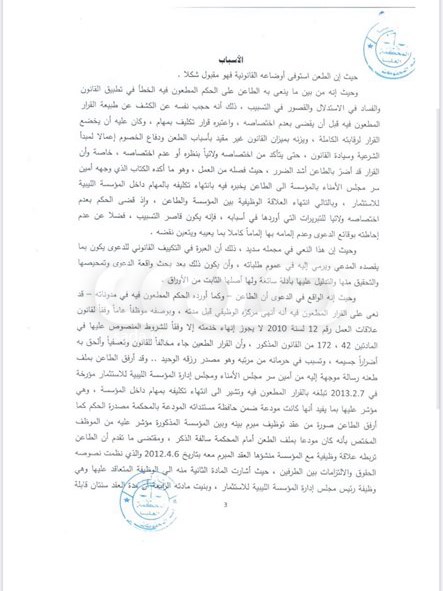 الأسباب
حيث إن الطعن استوفى أوضاعه القانونية فهو مقبول شكلا .
وحيث إنه من بين ما ينعي به الطاعن على الحكم المطعون فيه الخطأ في تطبيق القانون
والفساد في الاستدلال والقصور في التسبيب ، ذلك أنه حجب نفسه عن الكشف عن طبيعة القرار
المطعون فيه قبل أن يقضي بعدم اختصاصه ، واعتبره قرار تكليف بمهام ، وكان عليه أن يخضع
القرار لرقابته الكاملة ، ويزنه بميزان القانون غير مقيد بأسباب الطعن ودفاع الخصوم إعمالا لمبدأ
الشرعية وسيادة القانون ، حتى يتأكد من اختصاصه ولائياً بنظره أو عدم اختصاصه ، خاصة وأن
القرار قد أضرّ بالطاعن أشد الضرر ، حيث فصله من العمل ، وهو ما أكده الكتاب الذي وجهه أمين
سر مجلس الأمناء بالمؤسسة إلى الطاعن يخبره فيه بانتهاء تكليفه بالمهام داخل المؤسسة الليبية
للاستثمار ، وبالتالي انتهاء العلاقة الوظيفية بين المؤسسة والطاعن ، وإذ قضى الحكم بعدم
اختصاصه ولائيا للتبريرات التي أوردها في أسبابه ، فإنه يكون قاصر التسبيب ، فضلا عن عدم
إحاطته بوقائع الدعوى وعدم إلمامه بها إلماماً كاملا بما يعيبه ويتعين نقضه .
وحيث إن هذا النعي في مجمله سديد ، ذلك أن العبرة في التكييف القانوني للدعوى يكون بما
يقصده المدعي ويرمي إليه في عموم طلباته ، وأن يكون ذلك بعد بحث واقعة الدعوى وتمحيصها
والتحقيق منها والتدليل عليها بأدلة سائغة ولها أصلها الثابت من الأوراق .
وحيث إنه الواقع في الدعوى أن الطاعن – وكما أورده الحكم المطعون فيه في مدوناته – قد
نعى على القرار المطعون فيه أنه أنهى مركزه الوظيفي قبل مدته ، وبوصفه موظفاً عاماً وفقاً لقانون
علاقات العمل رقم 12 لسنة 2010 لا يجوز إنهاء خدمته إلا وفقاً للشروط المنصوص عليها في
المادتين 42 ، 172 من القانون المذكور ، وأن القرار الطعين جاء مخالفاً للقانون وتعسفياً وألحق به
أضراراً جسيمه ، وتسبب في حرمانه من مرتبه وهو مصدر رزقه الوحيد .. وقد أرفق الطاعن بملف
طعنه رسالة موجهة إليه من أمين سر مجلس الأمناء ومجلس إدارة المؤسسة الليبية للاستثمار مؤرخة
2013.2.7 تبلغه بالقرار المطعون فيه وتشير الى انتهاء تكليفه بمهام داخل المؤسسة ، وهي
مؤشر عليها بما يفيد أنها كانت مودعة ضمن حافظة مستنداته المودعة بالمحكمة مصدرة الحكم كما
أرفق الطاعن صورة من عقد توظيف مبرم بينه وبين المؤسسة المذكورة مؤشر عليه من الموظف
المختص بأنه كان مودعا بملف الطعن أمام المحكمة سالفة الذكر ، ومقتضى ما تقدم أن الطاعن
تربطه علاقة وظيفية مع المؤسسة منشؤها العقد المبرم معه بتاريخ 2012.4.6 والذي نظمت نصوصه
الحقوق والالتزامات بين الطرفين ، حيث أشارت المادة الثانية منه الى الوظيفة المتعاقد عليها وهي
وظيفة رئيس مجلس إدارة المؤسسة الليبية للاستثمار ، وبينت مادته الرابعة أن مدة العقد سنتان قابلة
3